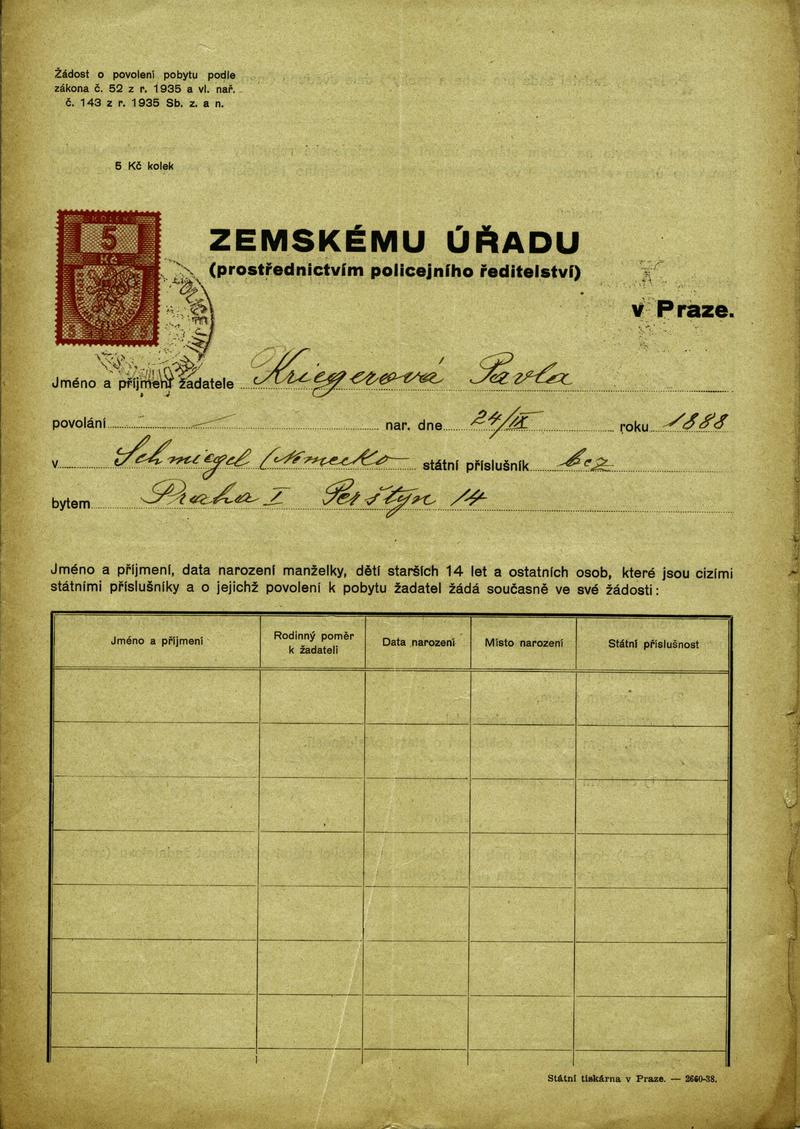 Žádost o povolení pobytu podle
zákona č. 52 z r. 1935 a vl. nař.
č. 143 z r. 1935 Sb. z. a n.
5 Kč kolek
5
Kč
5 5
ZEMSKÉMU ÚŘADU
(prostřednictvím policejního ředitelství)
v Praze.
Jméno a příjmení žadatele Kriegerová Pavla
povolání nar. dne 24/IX roku 1888
v Schmiegel (Německo státní příslušník bez
bytem Praha I Perštýn 14
Jméno a příjmení, data narození manželky, dětí starších 14 let a ostatních osob, které jsou cizími
státními příslušníky a o jejichž povolení k pobytu žadatel žádá současně ve své žádosti:
Jméno a příjmení Rodinný poměr k žadateli Data narození Místo narození Státní příslušnost
Státní tiskárna v Praze. — 2660-38.